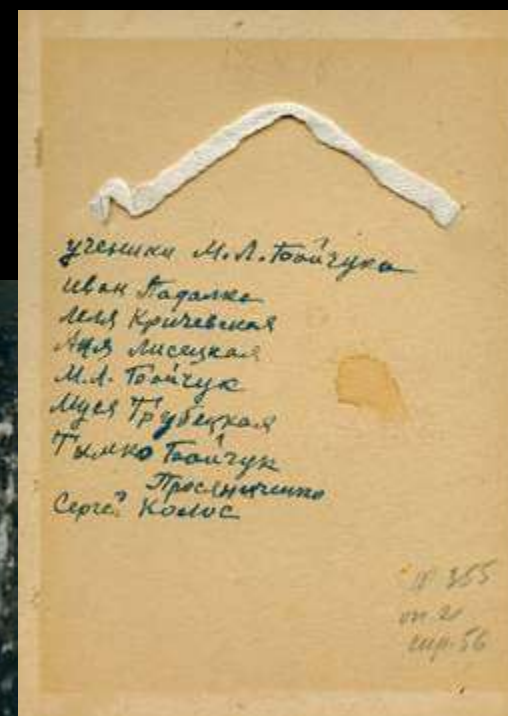 ученики М.Л. Бойчука
Иван Падалка
Леля Кричевская
Аня Лисецкая
М.Л. Бойчук
Муся Трубецкая
Тымко Бойчук
Просяниченко
Сергей Колос
355
оп 2
стр. 56